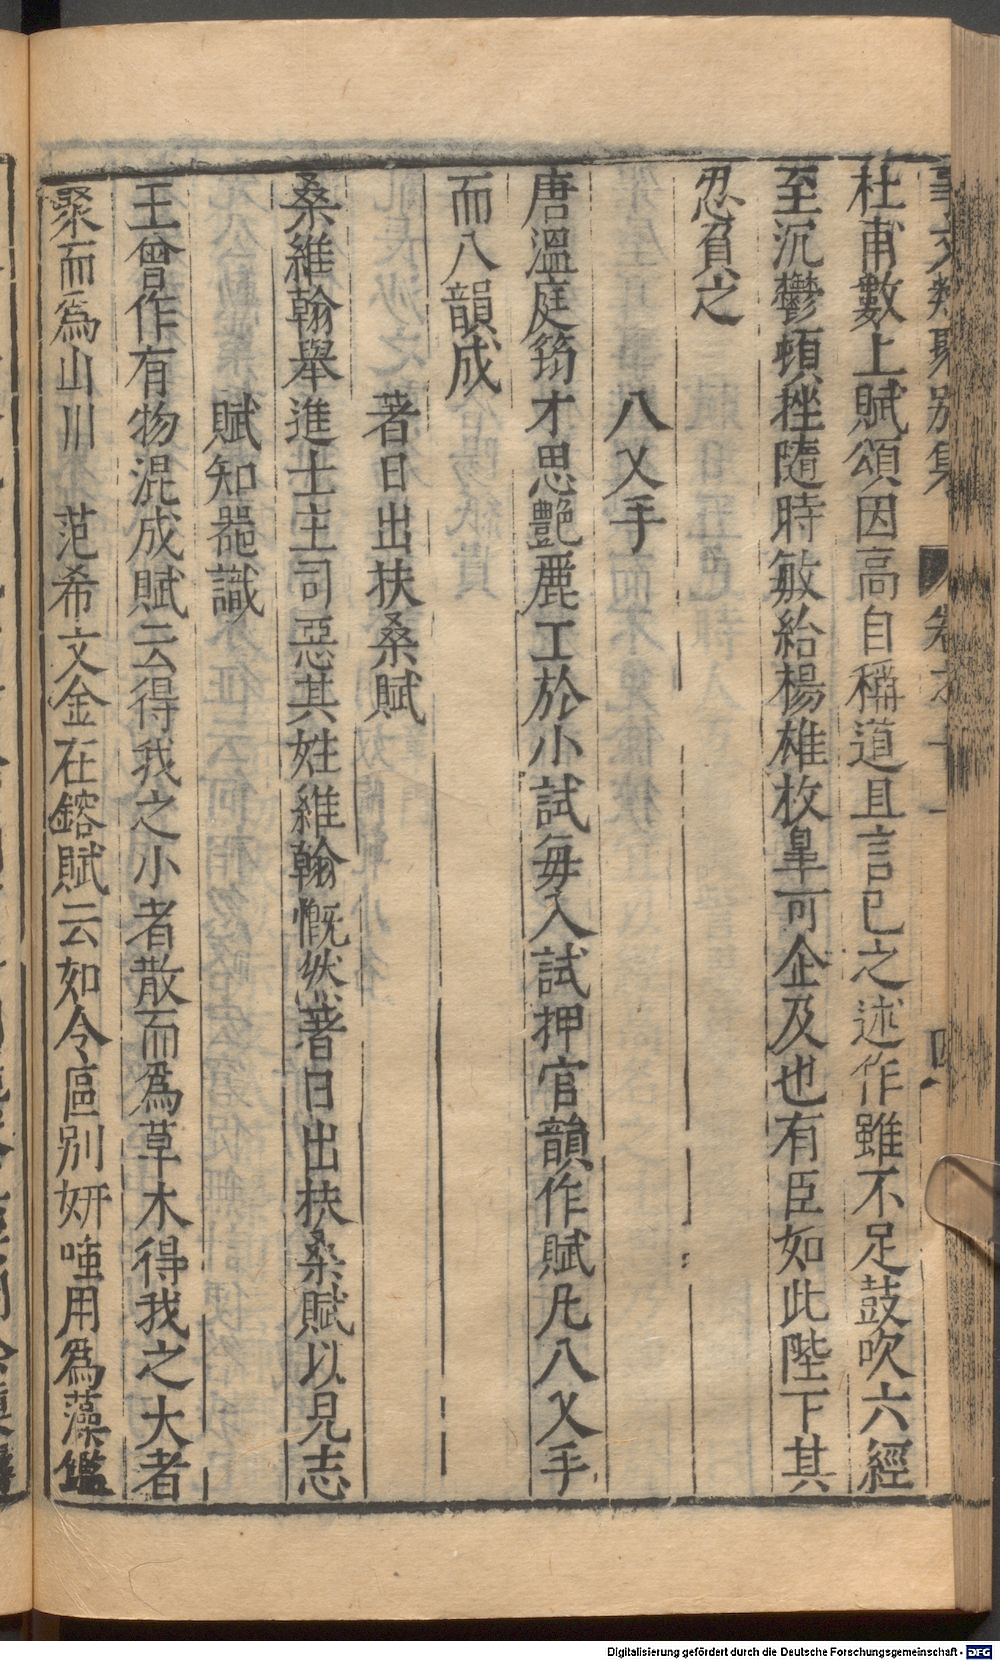 事文類聚別集 卷之十一 四
杜甫數上賦頌因高自稱道且言己之述作雖不足鼓吹六經
至沉鬱頓挫隨時敏給楊雄枚皐可企及也有臣如此陛下其
忍負之
八乂手
唐溫庭筠才思艶麗工於小試每入試押官韻作賦凡八乂手
而八韻成
著日出扶桑賦
桑維翰舉進士主司惡其姓維翰慨然著日出扶桑賦以見志
賦知器識
王曾作有物混成賦云得我之小者散而爲草木得我之大者
聚而爲山川 范希文金在鎔賦云如令區別妍嗤用爲藻鑑
Digitalisierung gefördert durch die Deutsche Forschungsgemeinschaft - DFG